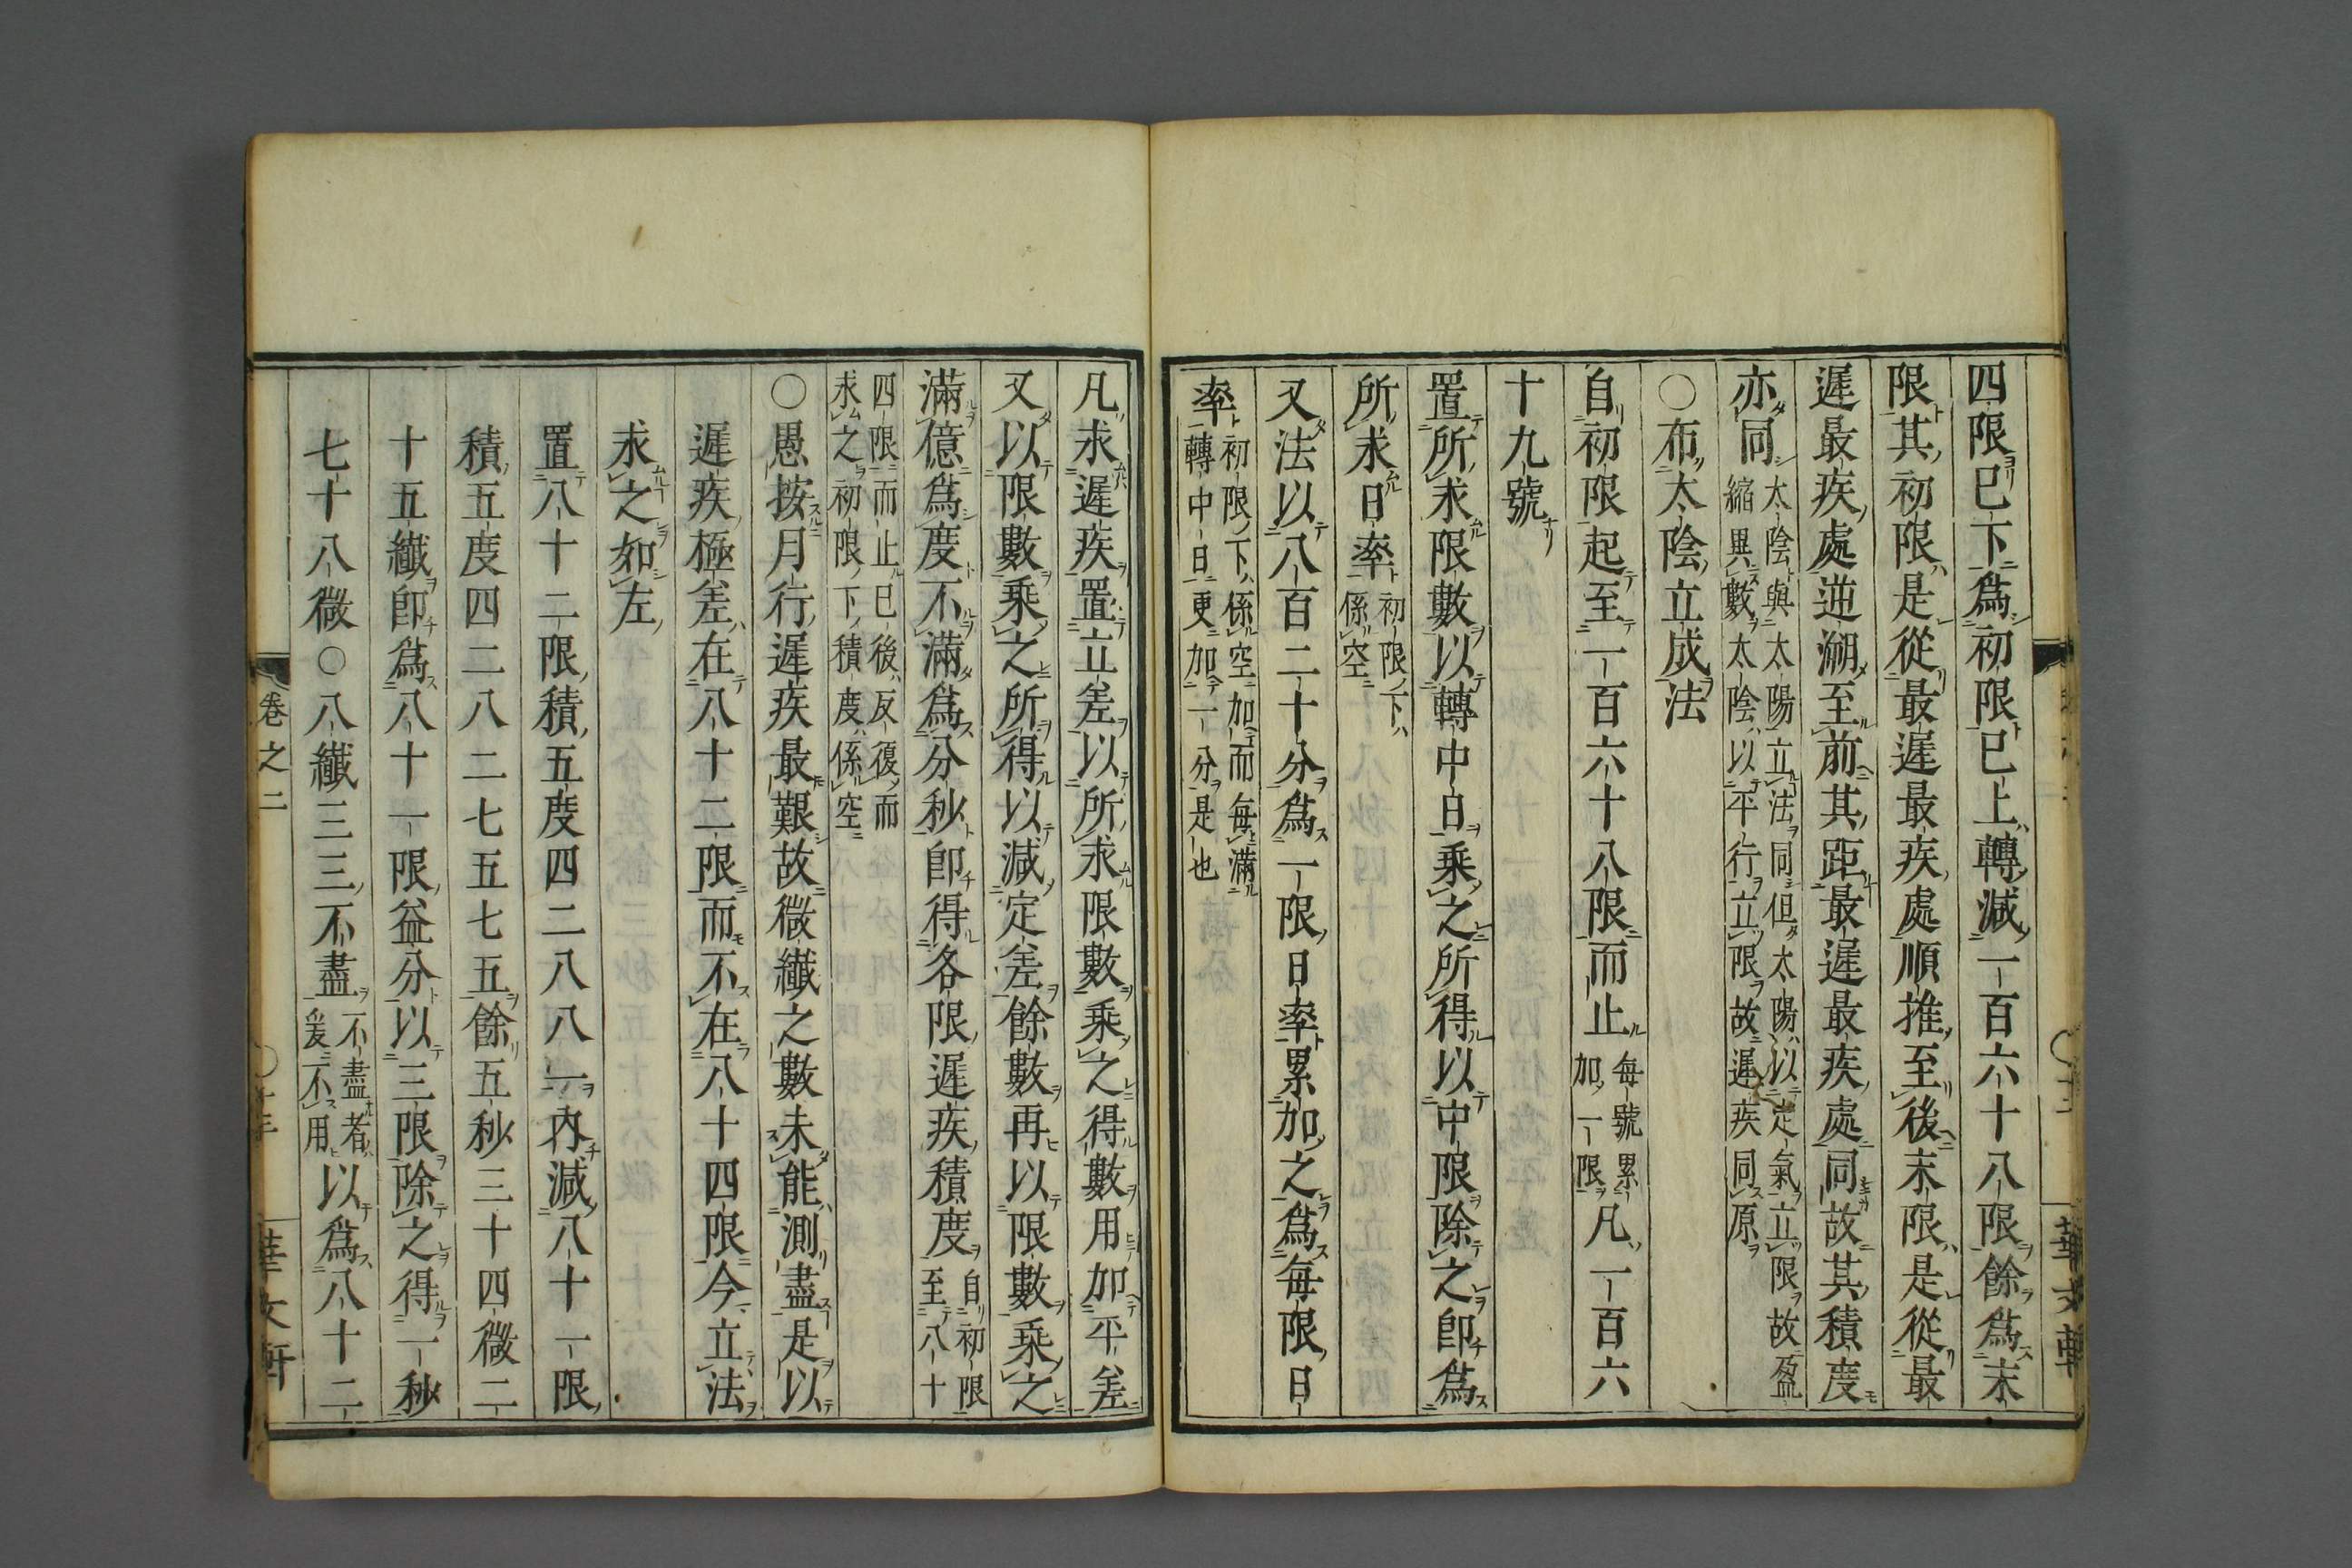 四限已下爲初限已上轉減一百六十八限餘爲末
限其初限是從最遲最疾處順推至後末限是從最
遲最疾處逆溯至前其距最遲最疾處同故其積度
亦同太陰與太陽立法同但太陽以定氣立限故盈
縮異數太陰以平行立限故遲疾同原
○布太陰立成法
自初限起至一百六十八限而止每號累加一限凡一百六
十九號
置所求限數以轉中日乘之所得以中限除之卽爲
所求日率初限下係空
又法以八百二十分爲一限日率累加之爲每限日
率初限下係空加而每滿轉中日更加一分是也
凡求遲疾置立差以所求限數乘之得數用加平差
又以限數乘之所得以減定差餘數再以限數乘之
滿億爲度不滿爲分秒卽得各限遲疾積度自初限至八十
四限而止已後反復而
求之初限下積度係空
○愚按月行遲疾最艱故微纖之數未能測盡是以
遲疾極差在八十二限而不在八十四限今立法
求之如左
置八十二限積五度四二八八一內減八十一限
積五度四二八二七五七五餘五秒三十四微二
十五纖卽爲八十一限益分以三限除之得一秒
七十八微○八纖三三不盡不盡者爰不用以爲八十二
卷之二
華文軒